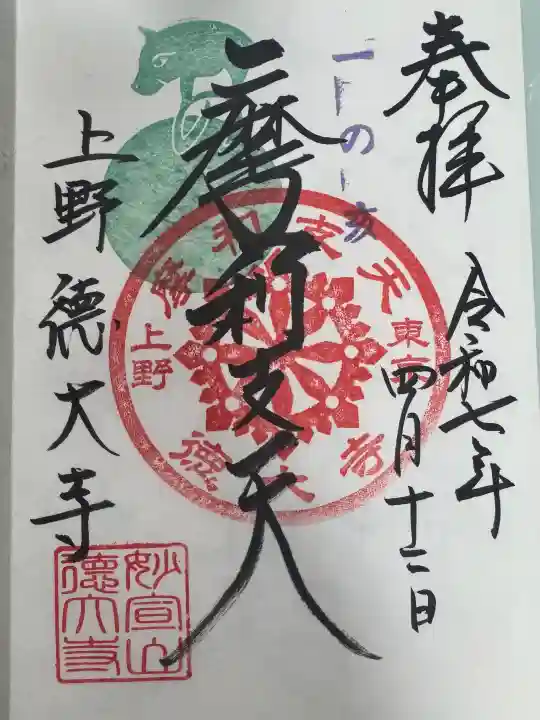 奉拝
令和七年
四月十二日
二の亥
摩利支天
摩利支天
東京
上野
徳大寺
上野徳大寺
妙宣山
徳大寺